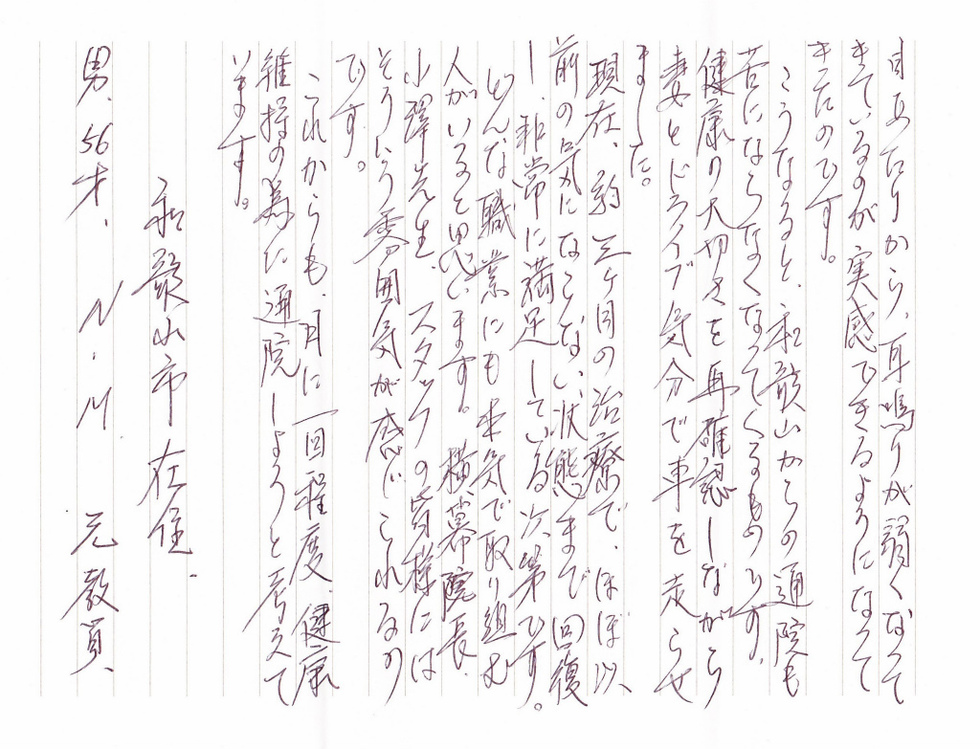 目あたりから、耳鳴りが弱くなって
きているのが実感できるようになって
きたのです。
こうなると、和歌山からの通院も
苦にならなくなってくるものです。
健康の大切さを再確認しながら
妻とドライブ気分で車を走らせ
ました。
現在、約三ヶ月の治療で、ほぼ以
前の号気になこない状態まで回復
し、非常に満足している次第です。
どんな職業にも本気で取り組む
人がいると思います。横幕院長、
小澤先生、スタッフの皆様には
そういう雰囲気が感じこれるの
です。
これからも、月に一回程度、健康
維持の為に通院しようと考えて
います。
和歌山市在住
男、56才、N・M 元教員、